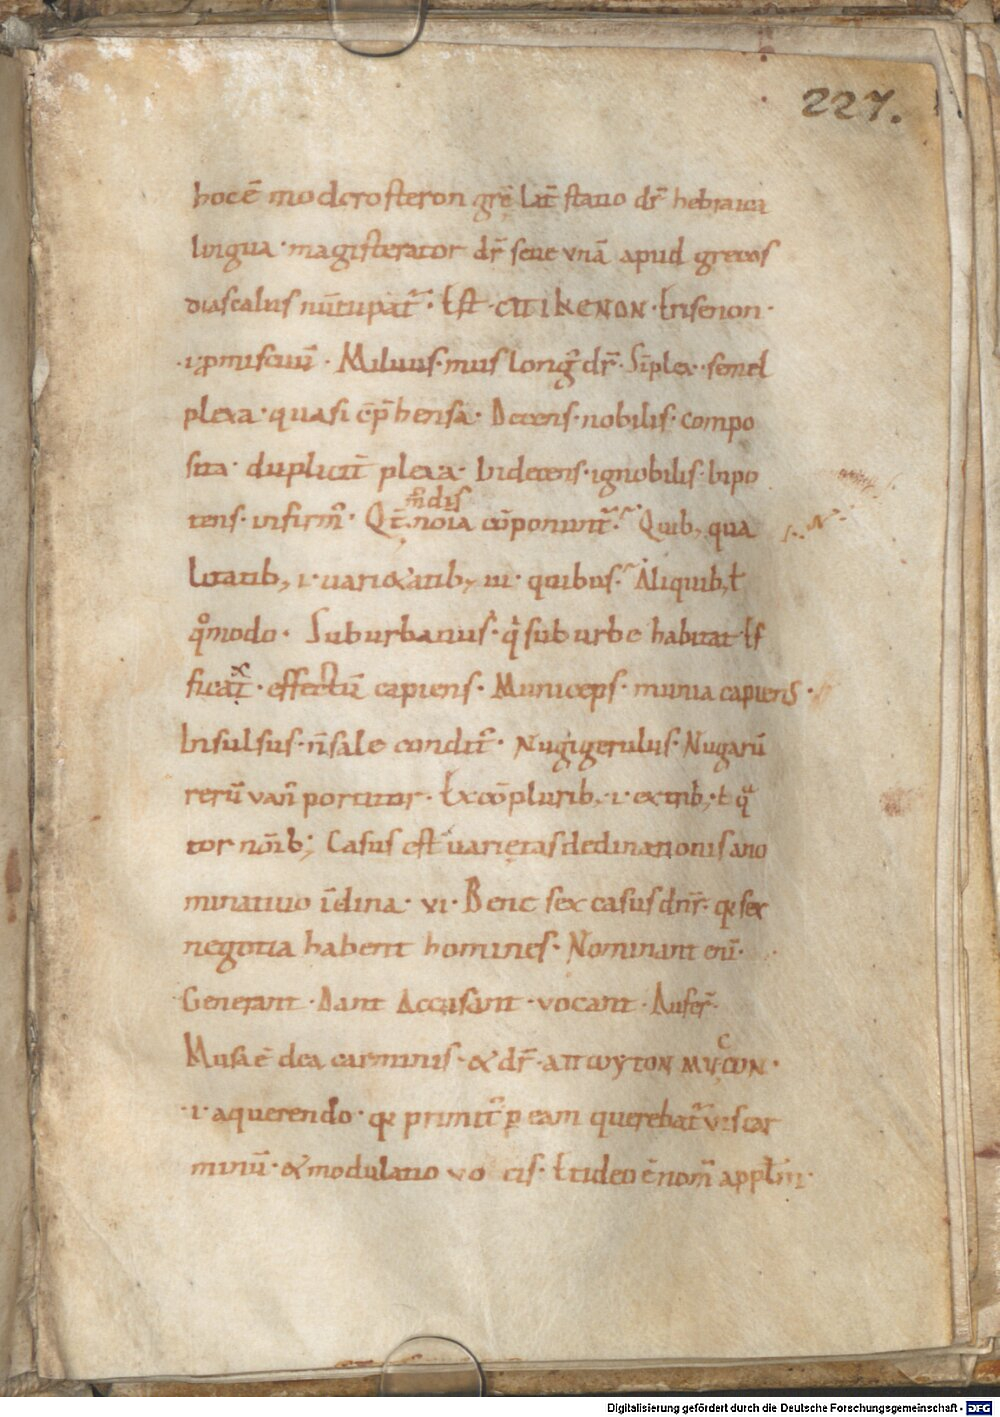 227.
hoc ē modcrosteron grē Lat̄ statio dr̄ hebraica
lingua · magisterator dr̄ siue vnā apud grecos
diascalus nūcupat᷑ · Est · CΠIKENON · trisenon ·
· i · ꝓmiscuū · Miluus · mus long᷑ dr̄ · Sīplex · semel
plexa · quasi c̄p̄hensa · Decens · nobilis · compo
sita · duplicit̄ plexa · Indecens · ignobilis · Inpo
tens · infirm᷑ · Qt̄ m̄dis noīa cōponunt᷑ · Quib; qua
litatib; · i · uari&atib; in · quibus · Aliquib; ł
qͦmodo · Suburbanus · q̇ sub urbe habitat Ef
ficax · effectū capiens · Municeps · munia capiens ·
Insulsus · n̄ sale condit᷑ · Nugigerulus · Nugarū
rerū van̄ portitor · Ex cōplurib; · i · ex trib; ł qͣ
tor nōib; Casus est uarietas declinationis a no
minatiuo īclina · vi · Bene sex casus dn̄r · q̨ sex
negotia habent homines · Nominant enī ·
Generant · Dant Accusant · vocant · Aufer̄ ·
Musa ē dea carminis · & dr̄ · aΠωyTON MYCωN ·
· i · a querendo · q̨ primit᷑ p̱ eam querebat᷑ vis car
minū · & modulatio vo cis · Et ideo ē nom̄ appłm ·
Digitalisierung gefördert durch die Deutsche Forschungsgemeinschaft - DFG